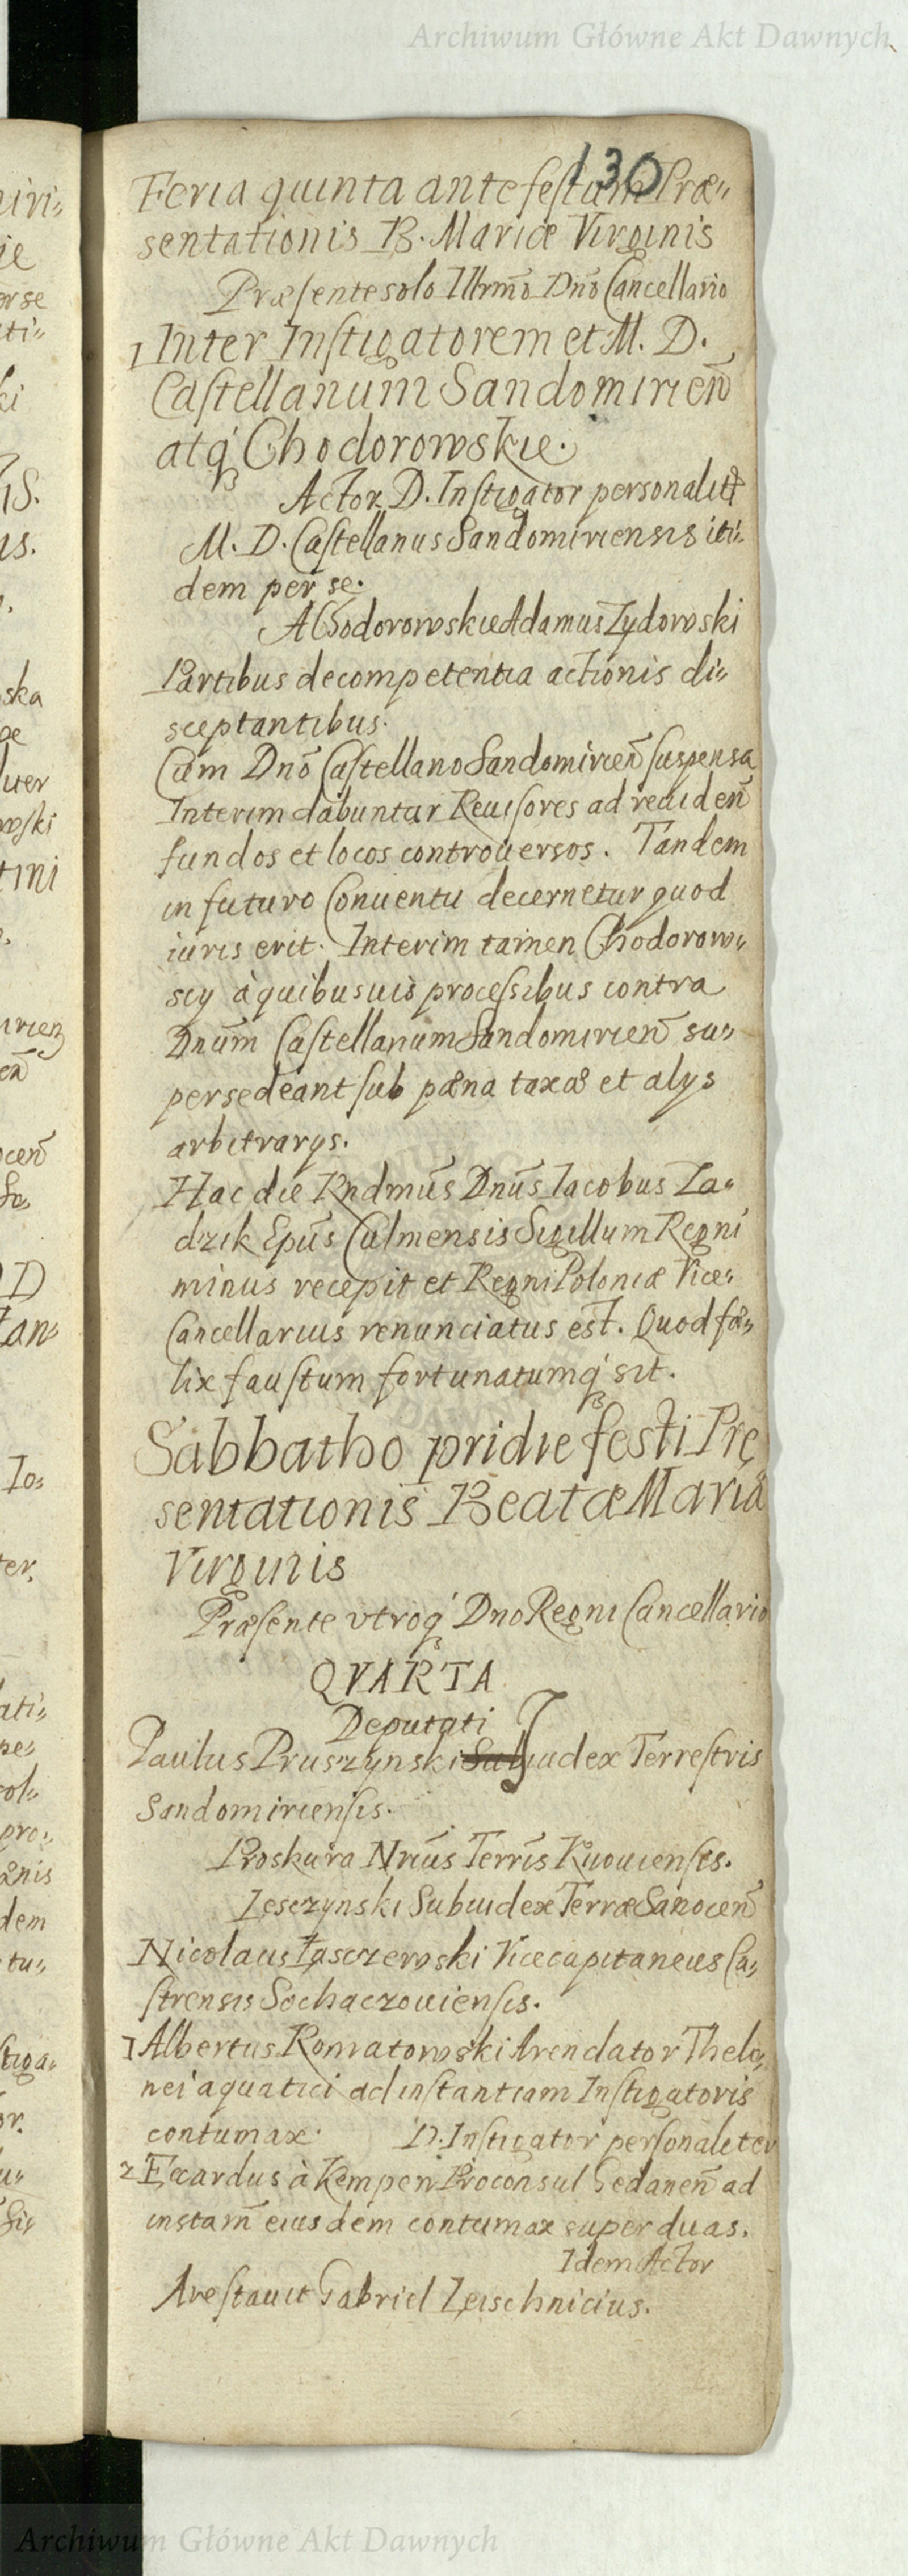 Archiwum Główne Akt Dawnych
130
Feria quinta ante festum Præ=
sentationis B. Mariæ Virginis
Præsente solo Illrmo Dno Cancellario
1 Inter Instigatorem et M. D.
Castellanum Sandomirien̄
atq́ Chodorowskie.
Actor D. Instigator personalitr
M. D. Castellanus Sandomiriensis iti=
dem per se.
A Chodorowskie Adamus Zydowski
Partibus de competentia actionis di=
sceptantibus.
Cum Dnō Castellano Sandomirien̄ suspensa
Interim dabuntur Reuisores ad reuiden̄
fundos et locos controuersos. Tandem
in futuro Conuentu decernetur quod
iuris erit. Interim tamen Chodorow=
scy à quibusuis processibus contra
Dnūm Castellanum Sandomirien̄ su=
persedeant sub pœna taxæ et alys
arbitrarys.
Hac die Rndmūs Dnūs Iacobus Za=
dzik Epūs Culmensis Sigillum Regni
minus recepit et Regni Poloniæ Vice=
Cancellarius renunciatus est. Quod fœ=
lix faustum fortunatumq́ sit.
Sabbatho pridie festi Præ
sentationis Beatæ Mariæ
Virginis
Præsente vtroq́ Dno Regni Cancellario
QVARTA
Deputati
Paulus Pruszynski Sub Judex Terrestris
Sandomiriensis.
Proskura Nrīus Terrīs Kiiouiensis.
Lesczynski Subiudex Terræ Sanocen̄
Nicolaus Łasczewski Vicecapitaneus Ca=
strensis Sochaczouiensis.
1 Albertus Romatowski Arendator Thelo=
nei aquatici ad instantiam Instigatoris
contumax. D. Instigator personaliter
2 Ecardus à Kempen Proconsul Gedanen̄ ad
instam̄ eiusdem contumax super duas.
Idem Actor
Arestauit Gabriel Zeischnicius.
Archiwum Główne Akt Dawnych